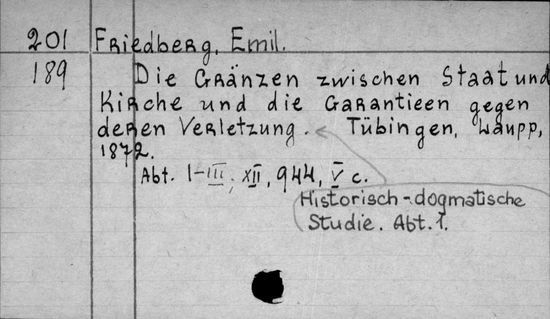 201 Friedberg, Emil.
189 Die Gränzen zwischen Staat und
Kirche und die Garantieen gegen
deren Verletzung. Tübingen, Laupp,
1872.
Abt. I-III, XII, 944, V c.
Historisch-dogmatische
Studie. Abt. 1.